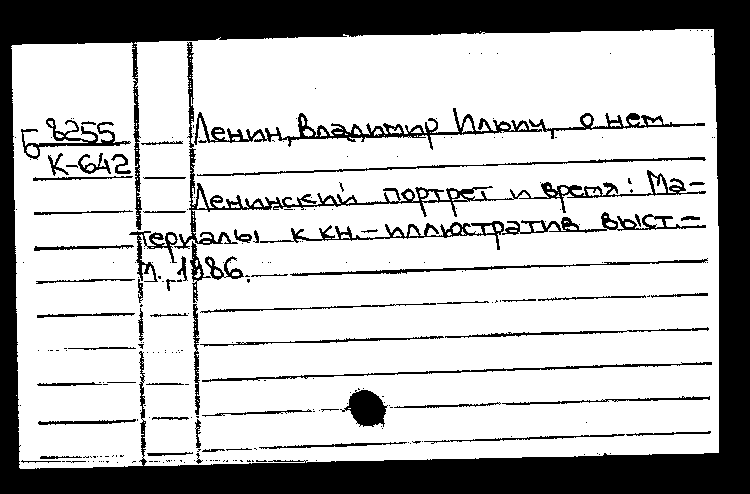 Б 8255
К-642
Ленин, Владимир Ильич, о нем.
Ленинский портрет и время: Ма-
териалы к кн.-иллюстратив выст.-
М., 1986.